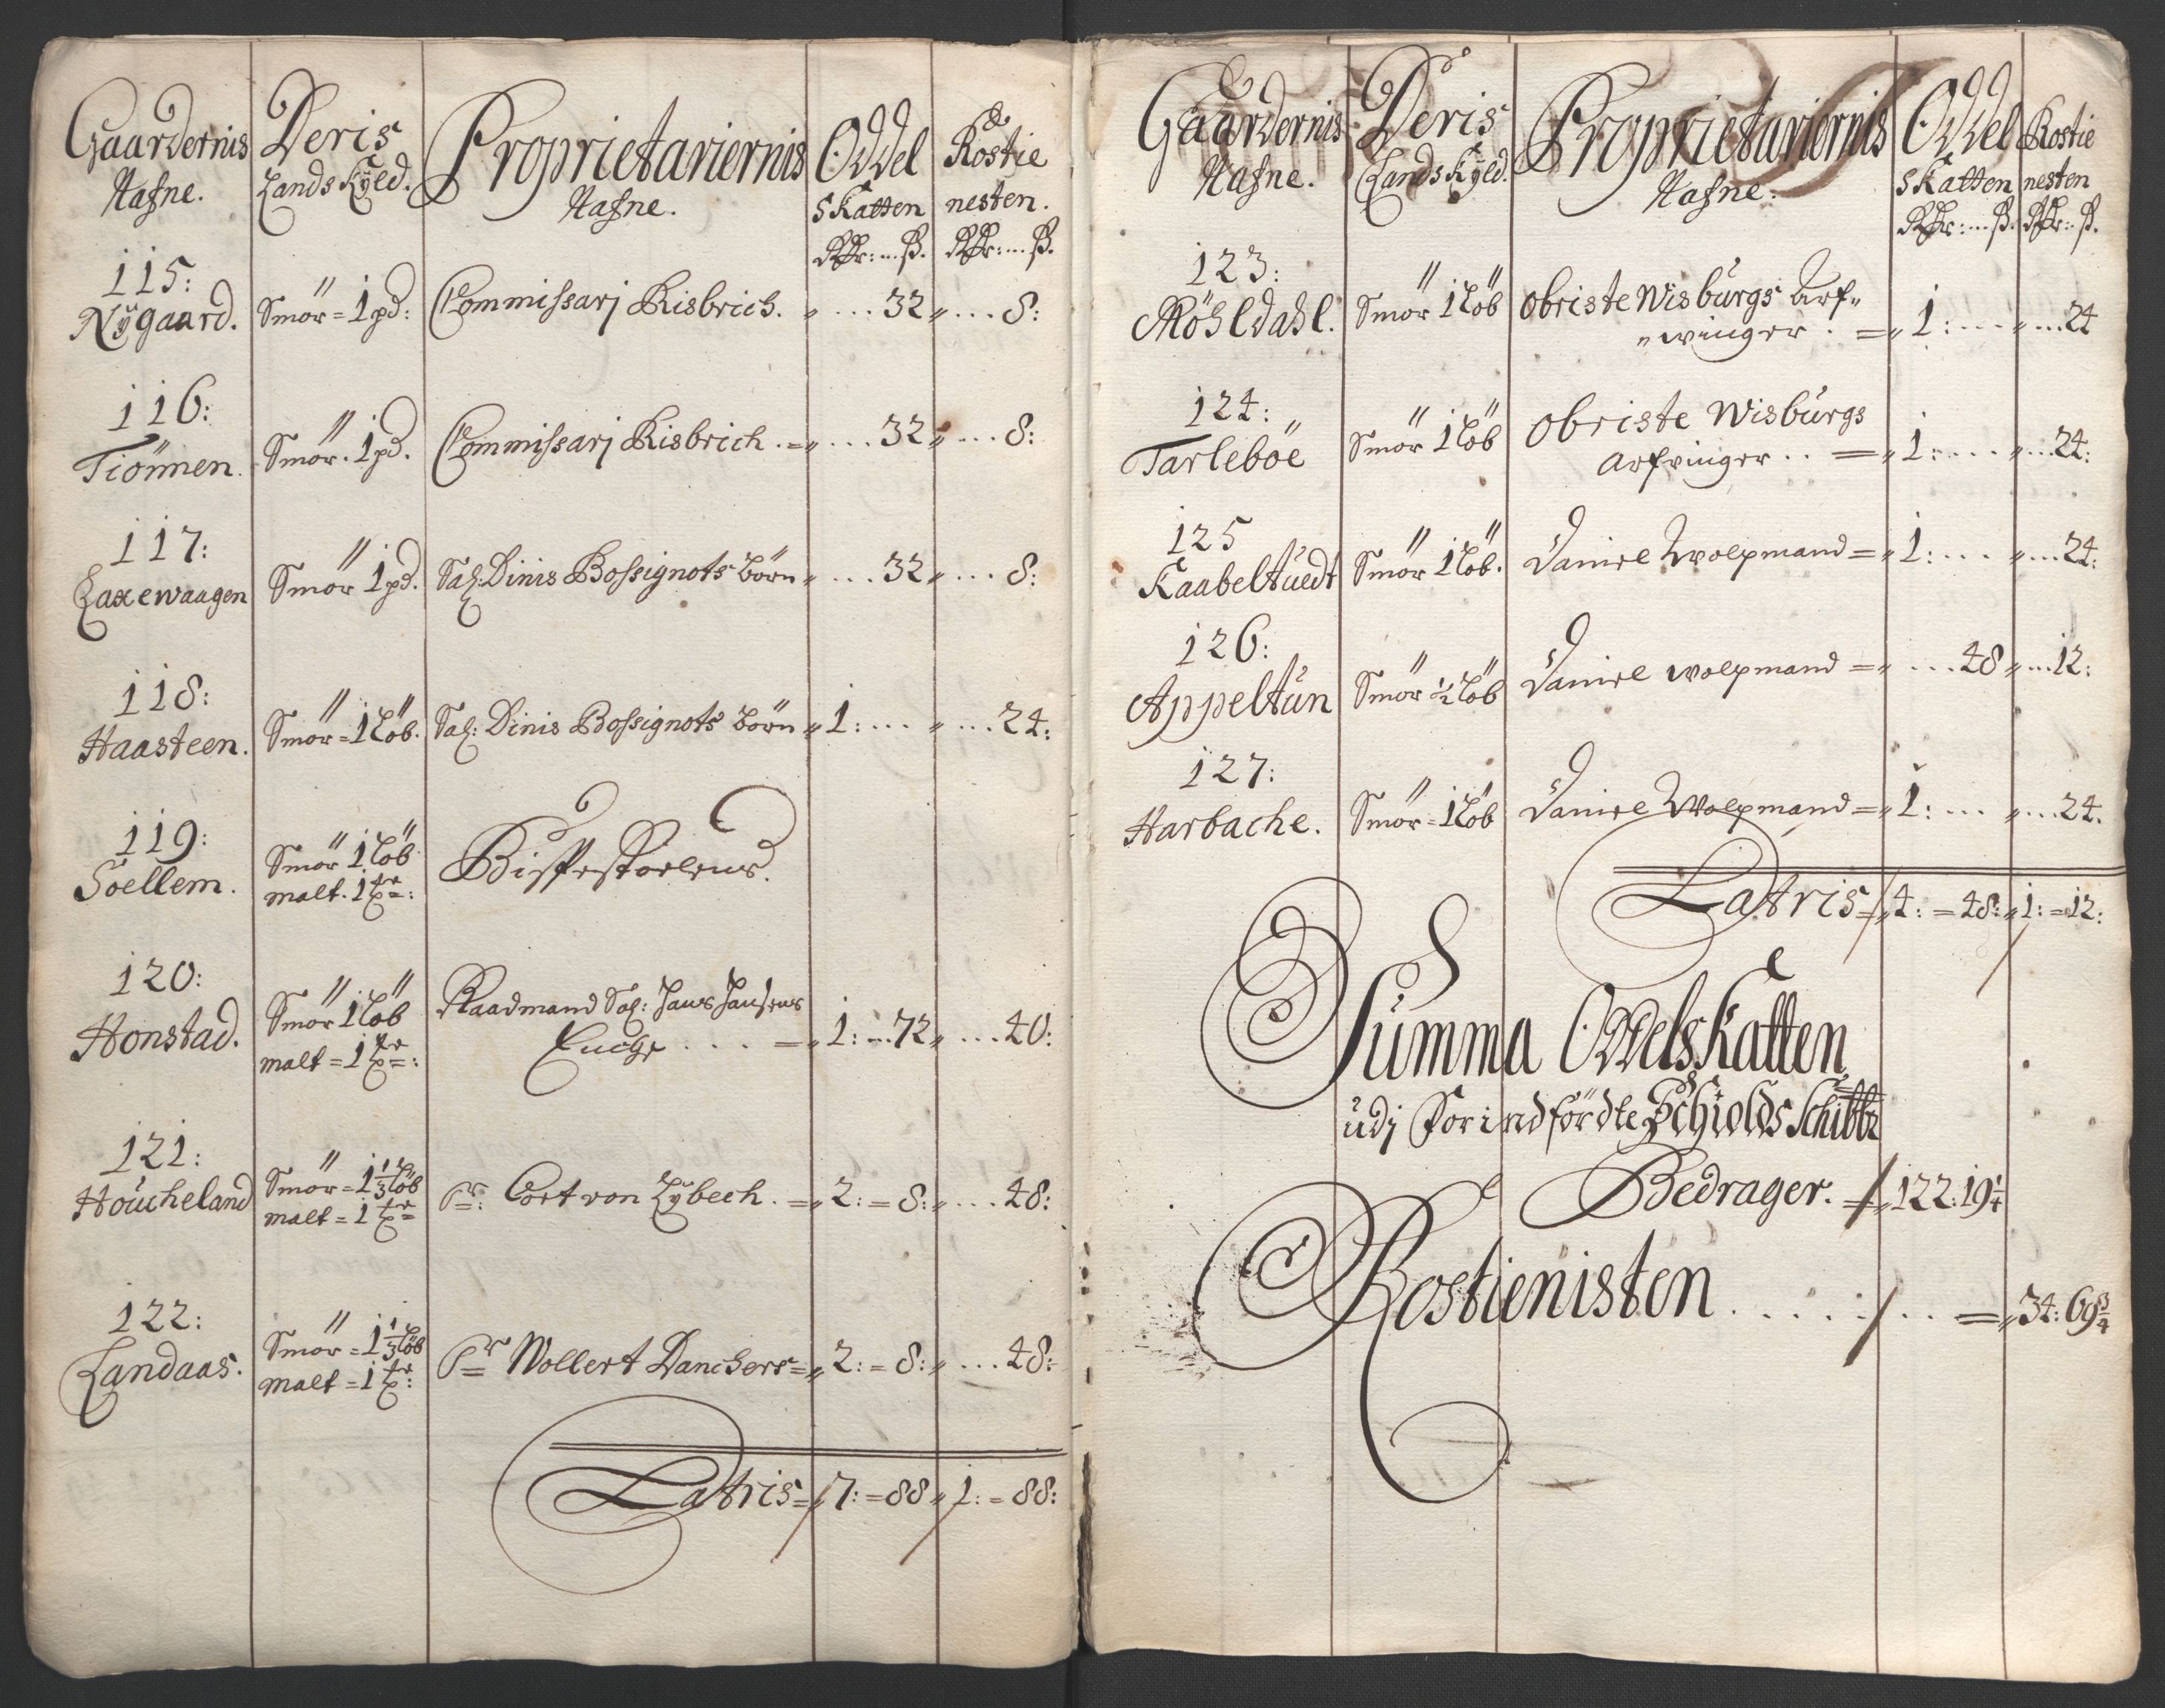 Gaardernis Nafne. | Deris Lands Kÿld. | Proprietariernis Nafne. | Oddel Skatten Rdr:...ß. | Rostie nesten. Rdr:...ß.
115:
Nÿgaard. | Smör = 1 pd: | Commissarj Risbrich. | " ... 32 | " ... 8:
116:
Tiönnen. | Smör. 1 pd. | Commissarj Risbrich. = | " ... 32 | " ... 8:
117:
Laxewaagen | Smör 1 pd. | Sal: Dinis Bossignots Börn | " ... 32 | " ... 8:
118:
Haasteen. | Smör = 1 Löb. | Sal: Dinis Bossignots Börn | " 1: ... | " ... 24:
119:
Soellem. | Smör 1 Löb | Bispestoelens.
malt. 1 tr:
120:
Honstad. | Smör 1 Löb | Raadmand Sal: Hans Hansens
malt = 1 tr: | Encke . . . = | " 1: ... 72 | " ... 40:
121:
Houcheland | Smör = 1 1/3 Löb | Sr: Cort von Lÿbech. = | " 2: = 8: | " ... 48:
malt = 1 tr
122:
Landaas. | Smör = 1 1/3 Löb | Sr Wollert Danckers = | " 2: = 8: | " ... 48:
malt = 1 tr:
Latris = | 7: = 88 | " 1: = 88:
Gaardernis Nafne. | Deris Lands Kÿld. | Proprietariernis Nafne: | Oddel Skatten Rdr:...ß. | Rostie nesten Rdr:..ß.
123:
Möhldahl. | Smör 1 Löb | Obriste Wisburgs Arf"
"winger. = | " 1: ... | " ... 24
124:
Tarleböe | Smör 1 Löb | Obriste Wisburgs
Arfvinger . . = | " 1: ... | " ... 24:
125
Kaabeltuedt | Smör 1 Löb. | Daniel Wolpmand = | " 1: ... | " ... 24:
126:
Appeltun | Smör 1/2 Löb | Daniel Wolpmand = | " ... 48 | " ... 12:
127:
Harbache. | Smör = 1 Löb | Daniel Wolpmand = | " 1: ... | " ... 24.
Latris = | " 4: = 48: | " 1: = 12:
Summa OddelsKatten
udj Forindfördte Schiolds Schibbr
Bedrager. = | 122: 19 1/4
Rostienisten . . . . . . . = | " 34: 69 3/4